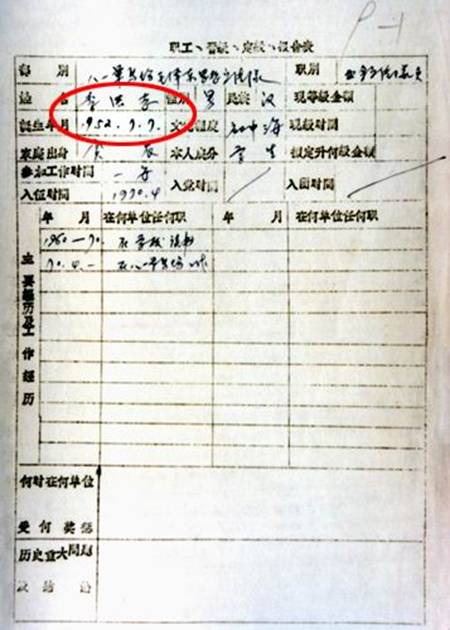 P-1
职工、晋级、定级、报告表
部 别 八一军马场毛泽东思想宣传队 职别
姓 名 李洪志 性别 男 民族 汉 现等级金额
诞生年月 1952.7.7. 文化程度 初中 现级时间
家庭出身 本人成分 学生 拟定升何级金额
参加工作时间 入党时间 入团时间
入伍时间 1970.4
年 月 在何单位任何职 年 月 在何单位任何职
主要经历及工作经历
1960-70. 在学校读书
70.4.- 在八一军马场工作
何时在何单位
受何奖惩
历史重大问题
及结论